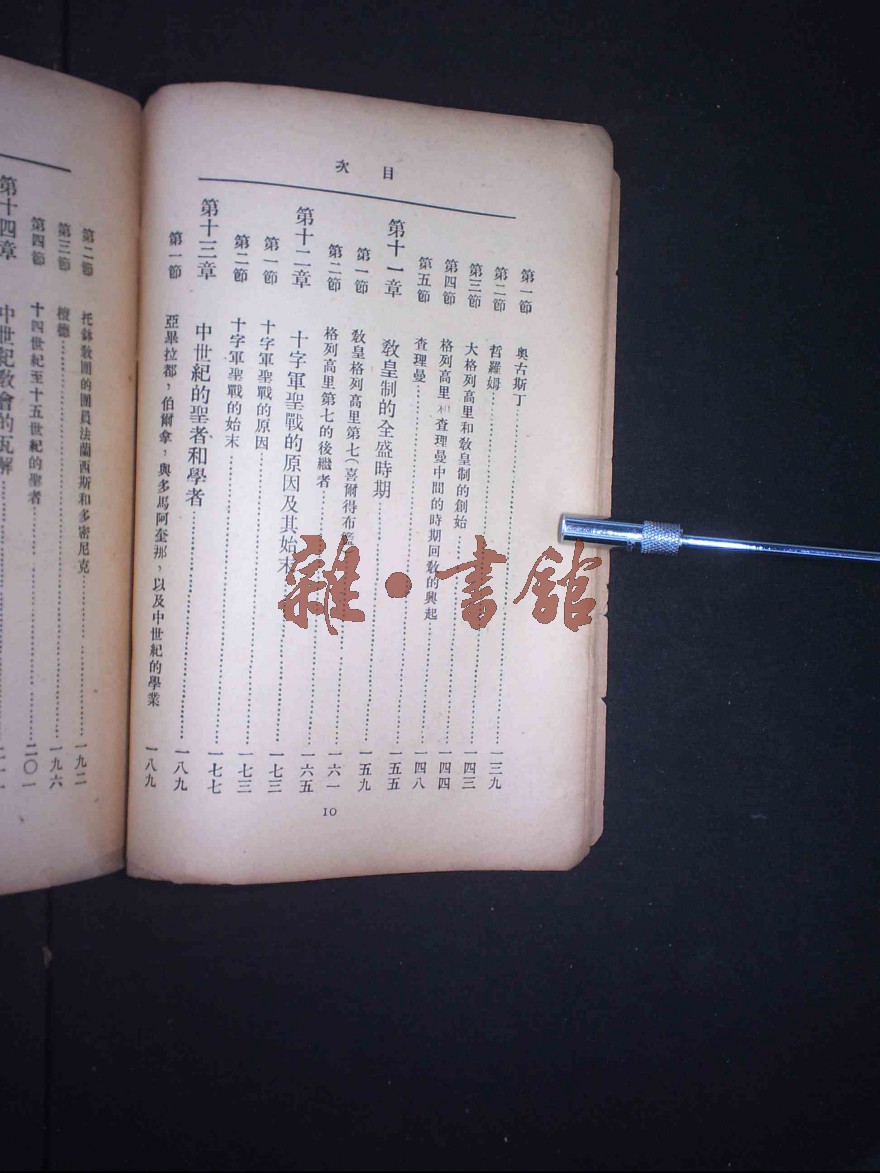 目次
第一節 奥古斯丁……一三九
第二節 哲羅姆……一四三
第三節 大格列高里和教皇制的創始……一四四
第四節 格列高里和查理曼中間的時期回教的興起……一四八
第五節 查理曼……一五五
第十一章 教皇制的全盛時期……一五九
第一節 教皇格列高里第七(喜爾得布……一六一
第二節 格列高里第七的後繼者……一六五
第十二章 十字軍聖戰的原因及其始末……一七三
第一節 十字軍聖戰的原因……一七三
第二節 十字軍聖戰的始末……一七七
第十三章 中世紀的聖者和學者……一八九
第一節 亞畢拉都，伯爾拿，與多馬阿奎那，以及中世紀的學業 一八九
10
第二節 托鉢教團的團員法蘭西斯和多密尼克……一九二
第三節 檀德……一九六
第四節 十四世紀至十五世紀的聖者……二〇一
第十四章 中世紀教會的瓦解
雜·書館